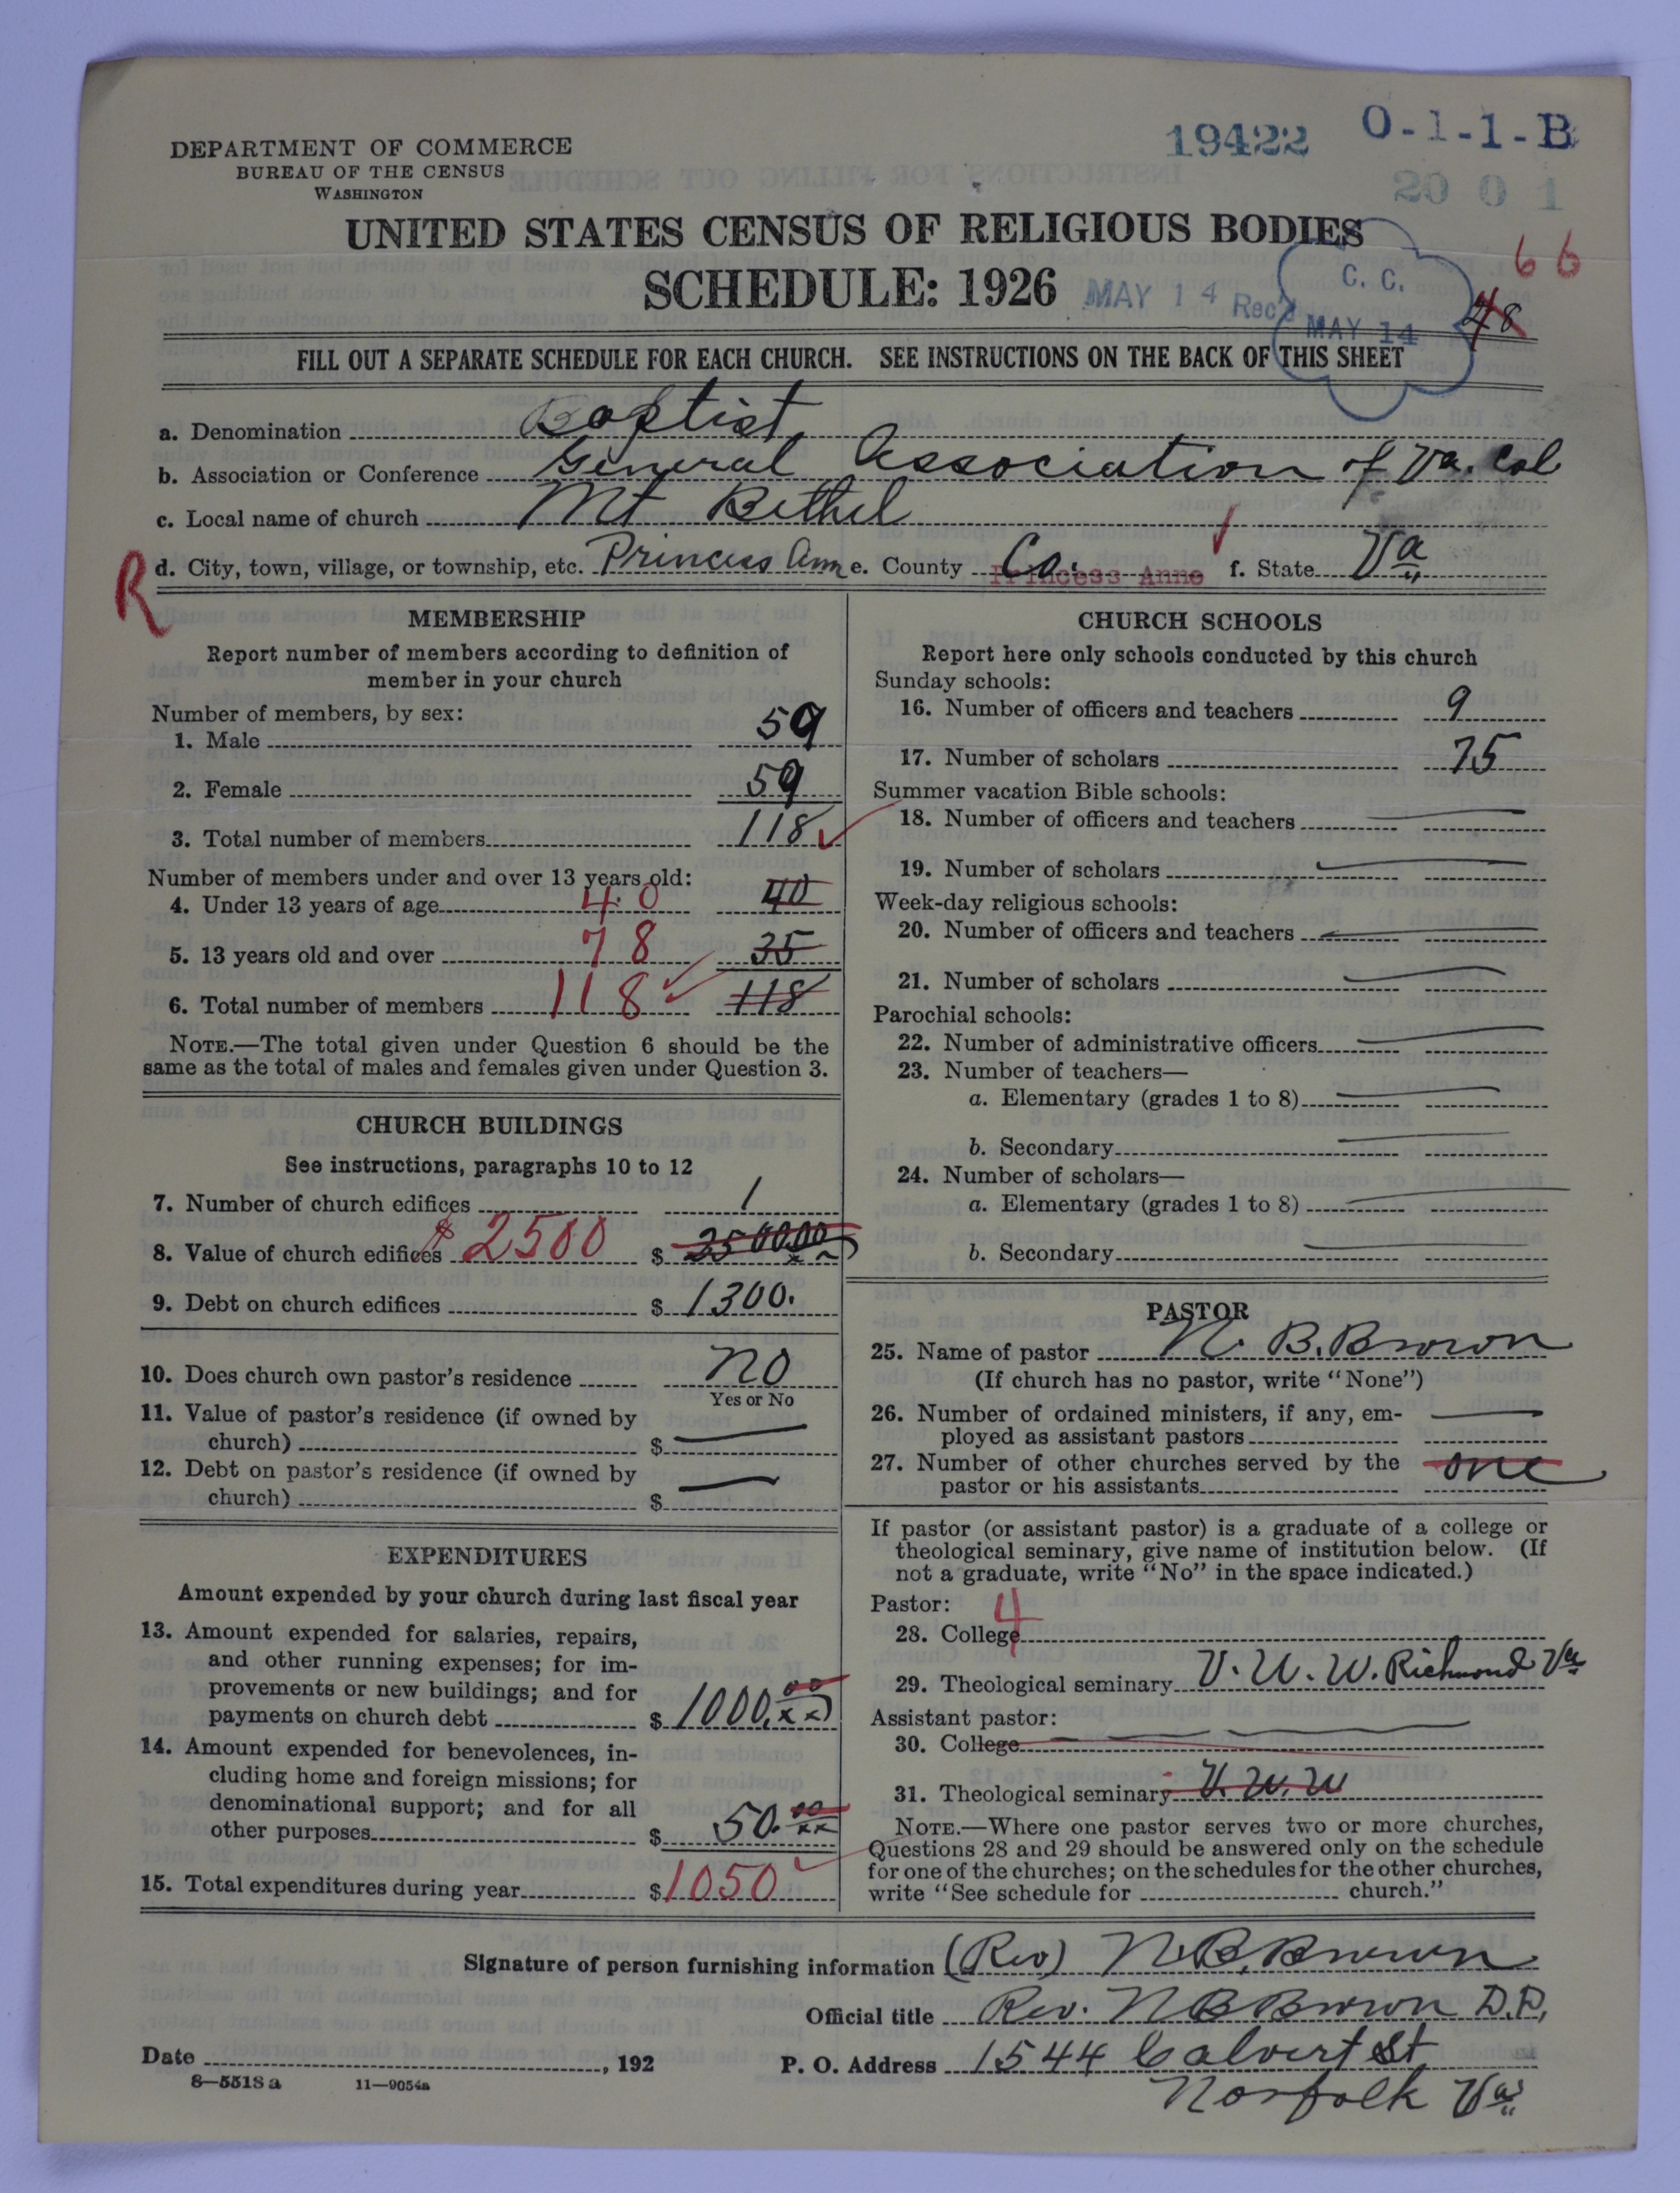 19422 O-1-1-B
DEPARTMENT OF COMMERCE
BUREAU OF THE CENSUS
WASHINGTON
20 0 1
UNITED STATES CENSUS OF RELIGIOUS BODIES
66
SCHEDULE: 1926 MAY 14 Rec'd C. C. MAY 14
48
FILL OUT A SEPARATE SCHEDULE FOR EACH CHURCH. SEE INSTRUCTIONS ON THE BACK OF THIS SHEET
a. Denomination Baptist
b. Association or Conference General Association of Va. Col
c. Local name of church Mt Bethel
R d. City, town, village, or township, etc. Princess Ann e. County Co. Princess Anne f. State Va
MEMBERSHIP
Report number of members according to definition of
member in your church
Number of members, by sex:
1. Male 59
2. Female 59
3. Total number of members 118
Number of members under and over 13 years old:
4. Under 13 years of age 40 40
5. 13 years old and over 78 35
6. Total number of members 118 118
NOTE.—The total given under Question 6 should be the
same as the total of males and females given under Question 3.
CHURCH BUILDINGS
See instructions, paragraphs 10 to 12
7. Number of church edifices 1
8. Value of church edifices $2500 $ 2500.00
9. Debt on church edifices $ 1300.
10. Does church own pastor's residence no
Yes or No
11. Value of pastor's residence (if owned by
church) $ —
12. Debt on pastor's residence (if owned by
church) $ —
EXPENDITURES
Amount expended by your church during last fiscal year
13. Amount expended for salaries, repairs,
and other running expenses; for im-
provements or new buildings; and for
payments on church debt $ 1000.00 xx
14. Amount expended for benevolences, in-
cluding home and foreign missions; for
denominational support; and for all
other purposes $ 50.00 xx
15. Total expenditures during year $ 1050
CHURCH SCHOOLS
Report here only schools conducted by this church
Sunday schools:
16. Number of officers and teachers 9
17. Number of scholars 75
Summer vacation Bible schools:
18. Number of officers and teachers —
19. Number of scholars —
Week-day religious schools:
20. Number of officers and teachers —
21. Number of scholars —
Parochial schools:
22. Number of administrative officers —
23. Number of teachers—
a. Elementary (grades 1 to 8) —
b. Secondary —
24. Number of scholars—
a. Elementary (grades 1 to 8) —
b. Secondary —
PASTOR
25. Name of pastor N. B. Brown
(If church has no pastor, write "None")
26. Number of ordained ministers, if any, em-
ployed as assistant pastors —
27. Number of other churches served by the
pastor or his assistants one
If pastor (or assistant pastor) is a graduate of a college or
theological seminary, give name of institution below. (If
not a graduate, write "No" in the space indicated.)
Pastor: 4
28. College
29. Theological seminary V. U. W. Richmond Va
Assistant pastor:
30. College — —
31. Theological seminary V. U. W
NOTE.—Where one pastor serves two or more churches,
Questions 28 and 29 should be answered only on the schedule
for one of the churches; on the schedules for the other churches,
write "See schedule for church."
Signature of person furnishing information (Rev) N. B. Brown
Official title Rev. N B Brown D.D,
Date , 192 P. O. Address 1544 Calvert St
8—5518a 11—9054a
Norfolk Va